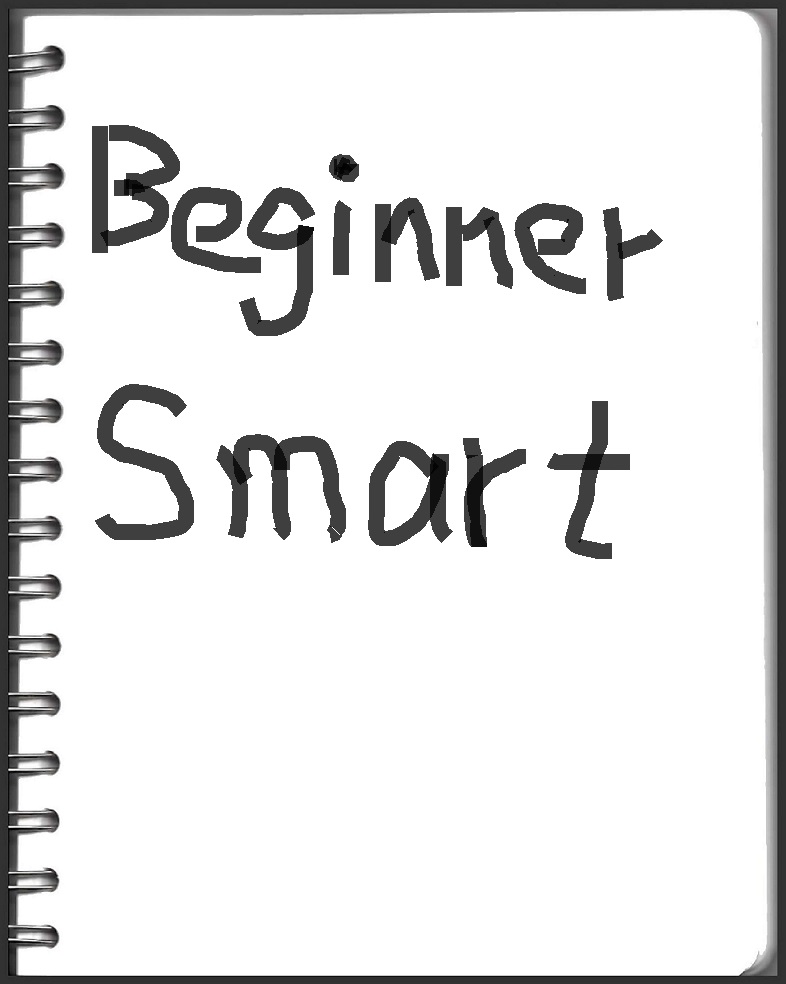 Beginner
Smart